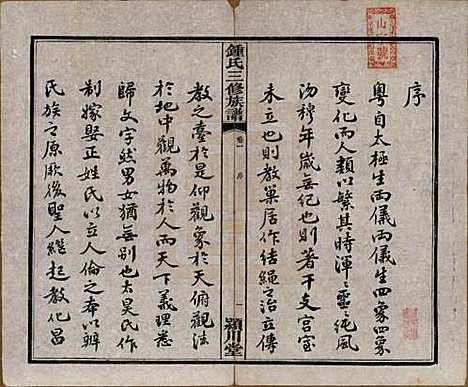 序
粵自太極生兩儀兩儀生四象四象
變化而人類以繁其時渾〻噩〻純風
沕穆年歲無紀也則著干支宮室
未立也則教巢居作結繩之治立傳
鍾氏三修族譜
卷一
序
一
潁川堂
教之臺於是仰觀象於天俯觀法
於地中觀萬物於人而天下義理悉
歸文字然男女猶無別也太昊氏作
制嫁娶正姓氏以立人倫之本以辨
民族之原厥後聖人繼起教化昌